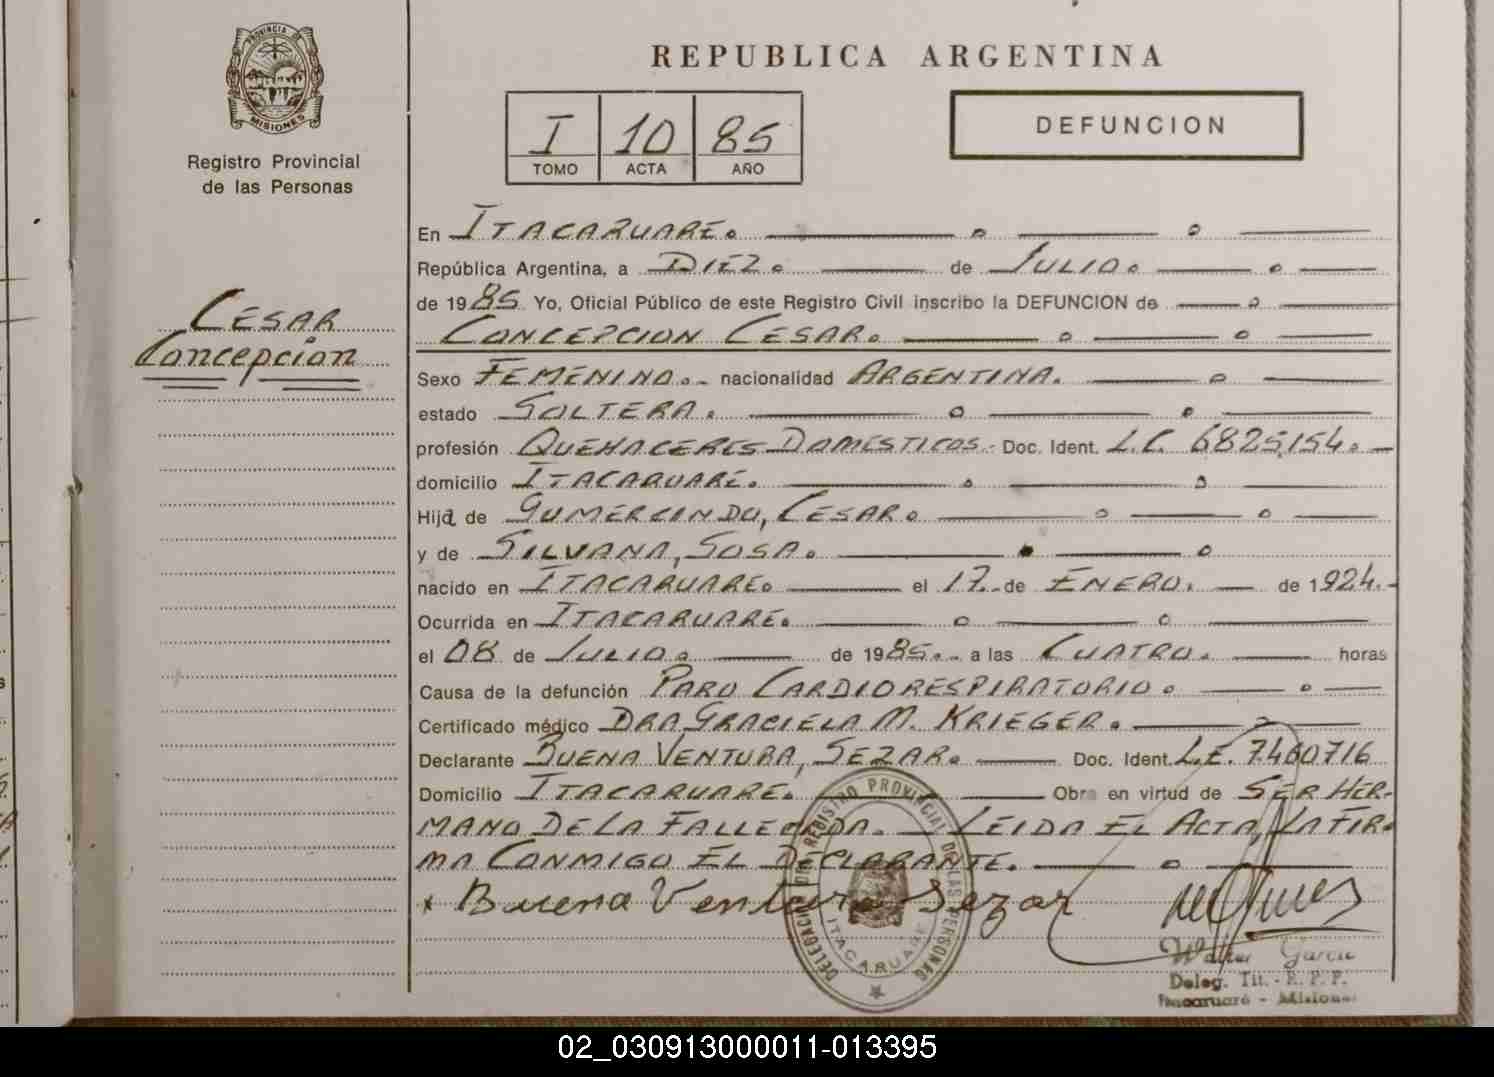 PROVINCIA DE
MISIONES
Registro Provincial
de las Personas
CESAR
Concepcion
REPUBLICA ARGENTINA
I 10 85
TOMO ACTA AÑO
DEFUNCION
En ITACARUARE.
República Argentina, a DIEZ. de JULIO.
de 1985 Yo, Oficial Público de este Registro Civil inscribo la DEFUNCION de
CONCEPCION CESAR.
Sexo FEMENINO.- nacionalidad ARGENTINA.
estado SOLTERA.
profesión QUEHACERES DOMESTICOS.- Doc. Ident. L.C. 6825,154.
domicilio ITACARUARÉ.
Hija de GUMERCINDO, CESAR.
y de SILVANA, SOSA.
nacido en ITACARUARE. el 17.- de ENERO. de 1924.-
Ocurrida en ITACARUARÉ.
el 08 de JULIO. de 1985.- a las CUATRO. horas
Causa de la defunción PARO CARDIORESPIRATORIO.
Certificado médico DRA, GRACIELA M. KRIEGER.
Declarante BUENA VENTURA, SEZAR. Doc. Ident. L.E. 7460716
Domicilio ITACARUARE. Obra en virtud de SER HER-
MANO DE LA FALLECIDA. LEIDA EL ACTA, LA FIR-
MA CONMIGO EL DECLARANTE.
x Buena Ventura Sezar
DELEGACION DEL REGISTRO PROVINCIAL DE LAS PERSONAS
ITACARUARE
Walter Garcia
Deleg. Tit. - R. P. P.
Itacaruaré - Misiones
02_030913000011-013395